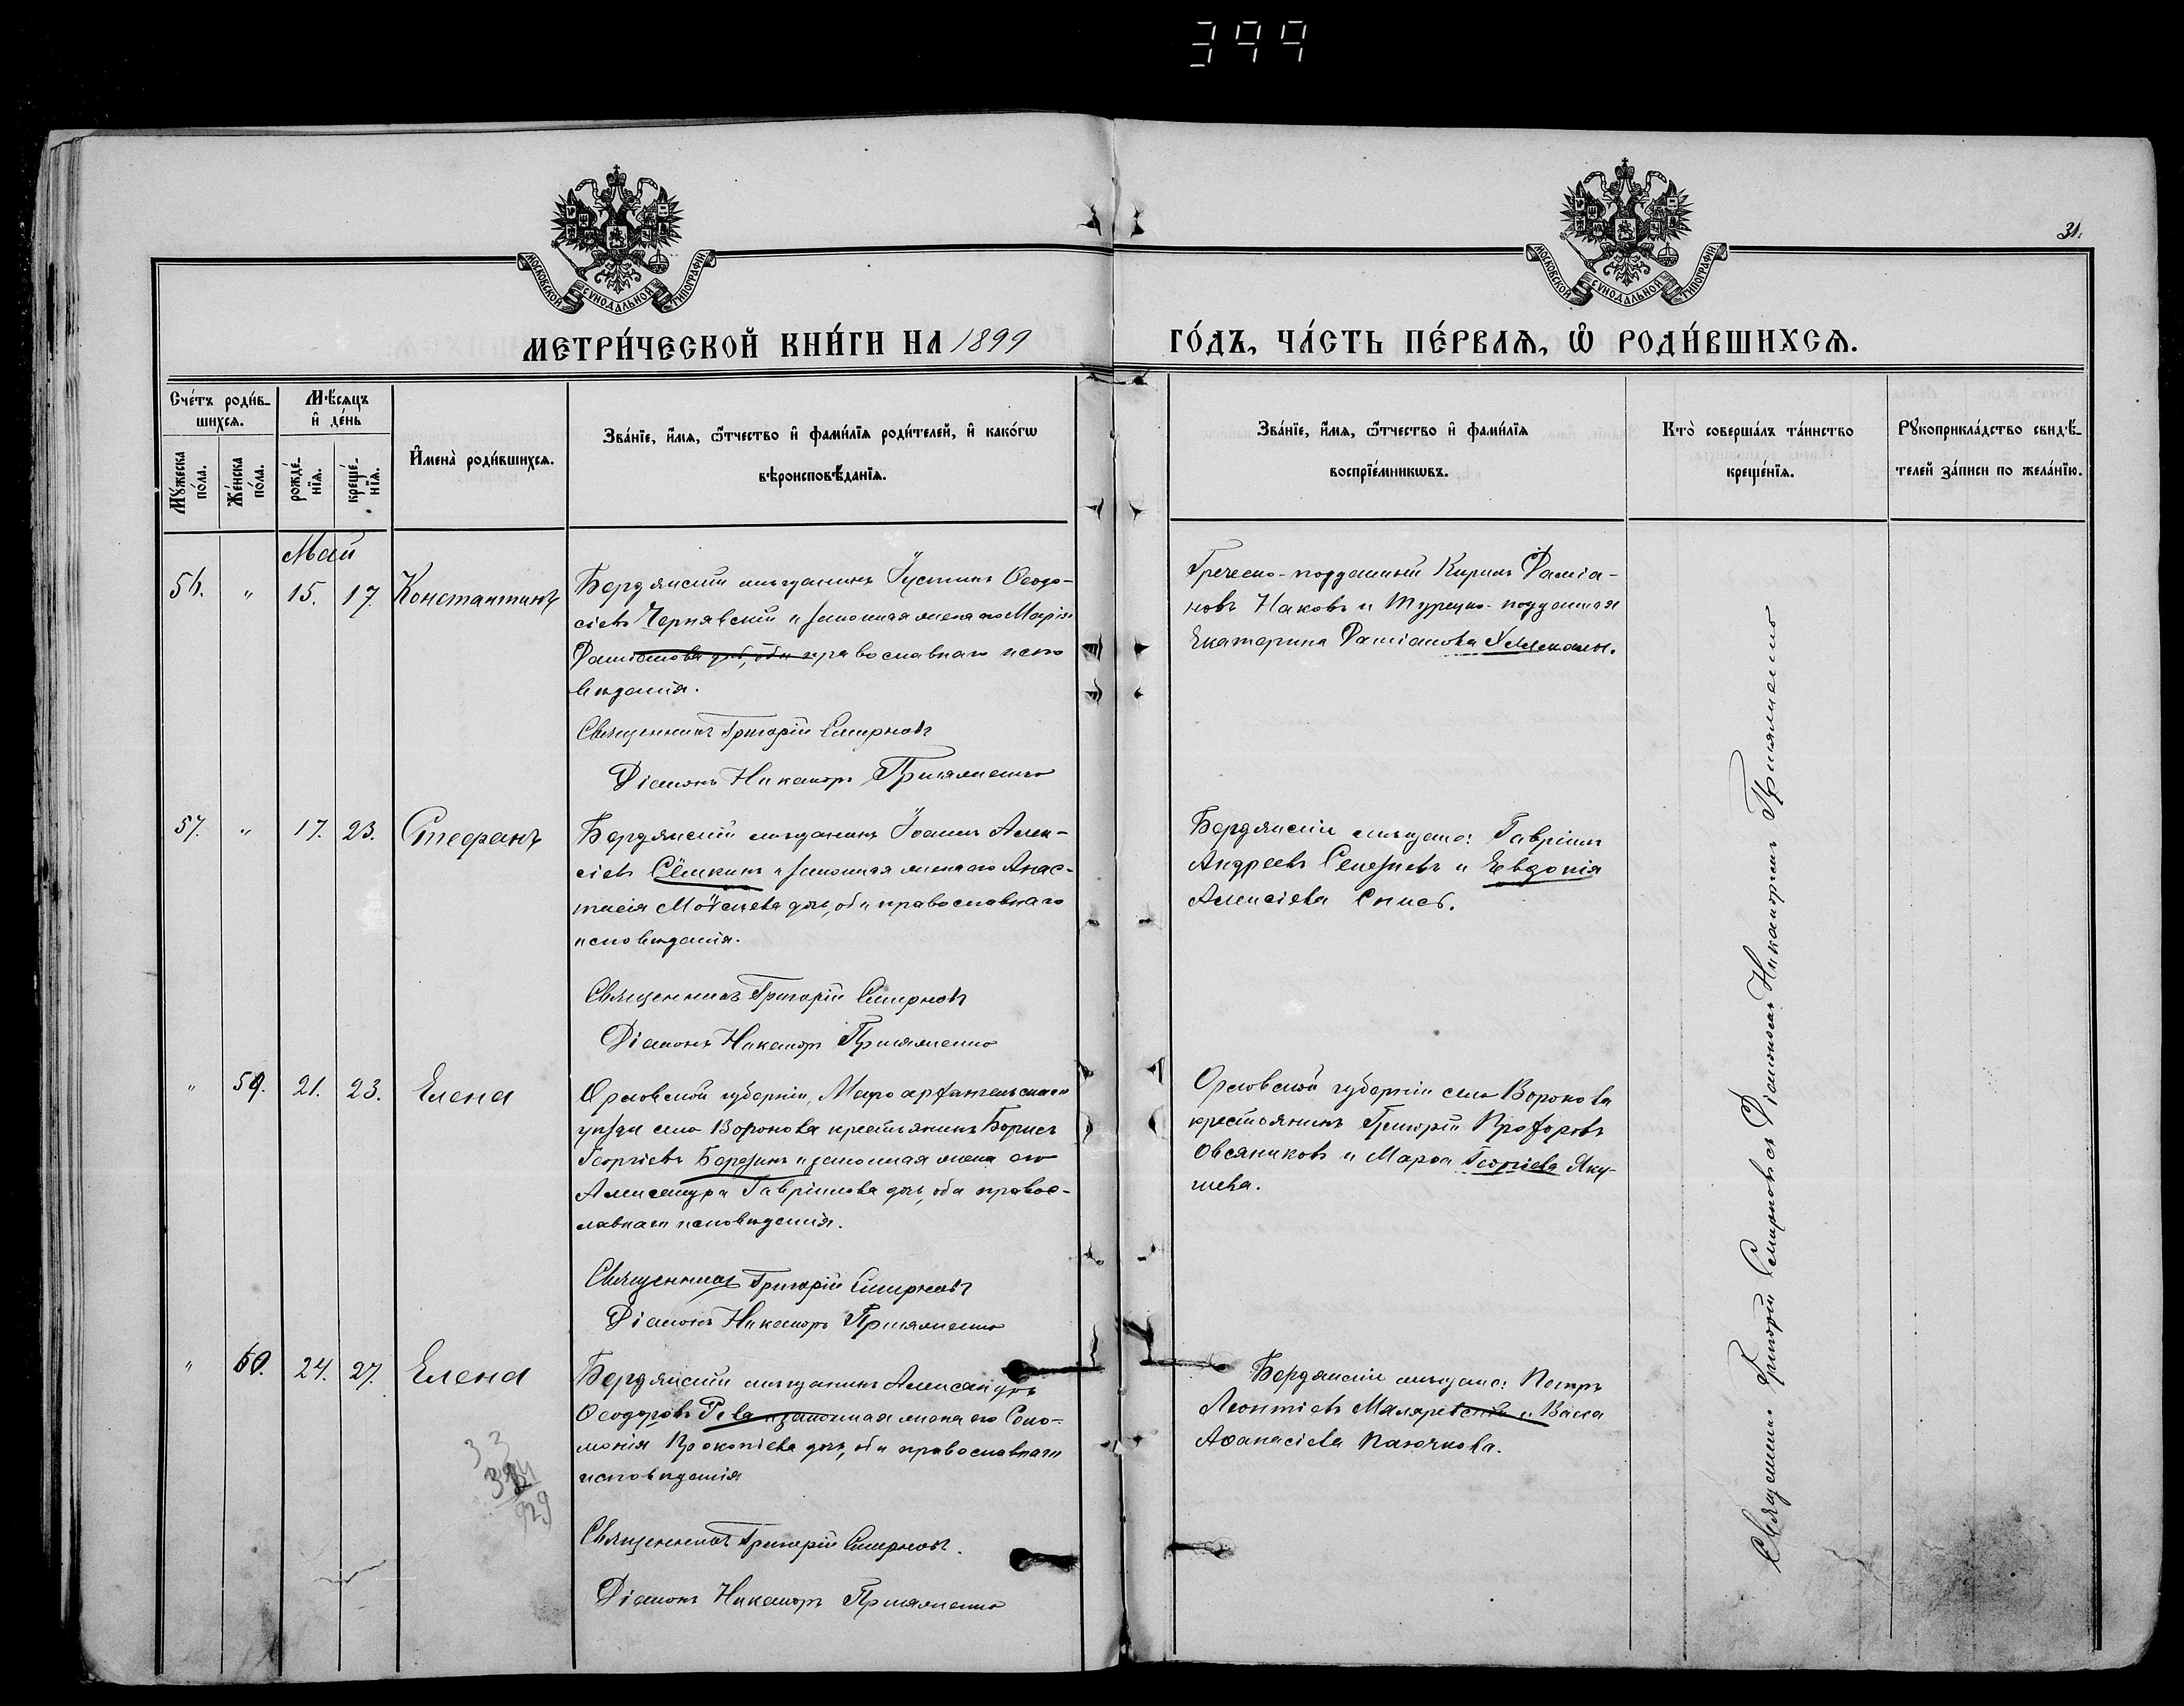 399
МОСКОВСКОЙ СУНОДАЛЬНОЙ ТИПОГРАФІИ
МОСКОВСКОЙ СУНОДАЛЬНОЙ ТИПОГРАФІИ
31.
МЕТРИ́ЧЕСКОЙ КНИ́ГИ НА 1899
ГО́ДЪ, ЧА́СТЬ ПЕ́РВАѦ, Ѽ РОДИ́ВШИХСѦ.
Сче́тъ роди́в-
шихсѧ.
Мꙋ́жеска по́ла.
Же́нска по́ла.
Мѣ́сяцъ
и҆ де́нь
рожде́-нїѧ.
креще́-нїѧ.
И҆мена̀ роди́вшихсѧ.
Зва́нїе, и҆́мѧ, ѻ҆́тчество и҆ фами́лїѧ роди́телей, и҆ како́гѡ
вѣроисповѣ́данїѧ.
Зва́нїе, и҆́мѧ, ѻ҆́тчество и҆ фами́лїѧ
воспрїе́мникѡвъ.
Кто̀ соверша́лъ та́инство
креще́нїѧ.
Рꙋкоприкла́дство свидѣ́-
телей за́писи по жела́нїю.
Май
56. " 15. 17. Константинъ
Бердянскій мѣщанинъ Іустинъ Ѳеодо-
сіевъ Чернявскій и законная жена его Марія
Даміанова доч, оба православнаго испо
вѣданія.
Священникъ Григорій Смирновъ
Діаконъ Никаноръ Пригяженко
Греческо-подданный Кирилъ Даміа-
новъ Наковъ и Турецко-подданная
Екатерина Даміанова
57. " 17. 23. Стефанъ
Бердянскій мѣщанинъ Іоаннъ Алек-
сіевъ Сёмкинъ и законная жена его Анас-
тасія Моѵсеева доч, оба православнаго
исповѣданія.
Священникъ Григорій Смирновъ
Діаконъ Никаноръ
Бердянскіе мѣщане: Гавріилъ
Андреевъ Селезневъ и Евдокія
Алексіева
" 59. 21. 23. Елена
Орловской губерніи, Малоархангельскаго
уѣзда села Воронова крестьянинъ Борисъ
Георгіевъ Березинъ и законная жена его
Александра Гавріилова доч, оба правос-
лавнаго исповѣданія.
Священникъ Григорій Смирновъ
Діаконъ Никаноръ
Орловской губерніи села Воронова
крестьянинъ Григорій Прохоровъ
Овсяниковъ и Марѳа Георгіева Яку-
шева.
" 60. 24. 27. Елена
Бердянскій мѣщанинъ Александръ
Ѳеодоровъ Рева и законная жена его Соло-
монія Прокопіева доч, оба православнаго
исповѣданія
Священникъ Григорій Смирновъ.
Діаконъ Никаноръ
Бердянскіе мѣщане: Петръ
Леонтіевъ и Васса
Аѳанасіева
Священникъ Григорій Смирновъ съ Діакономъ Никаноромъ